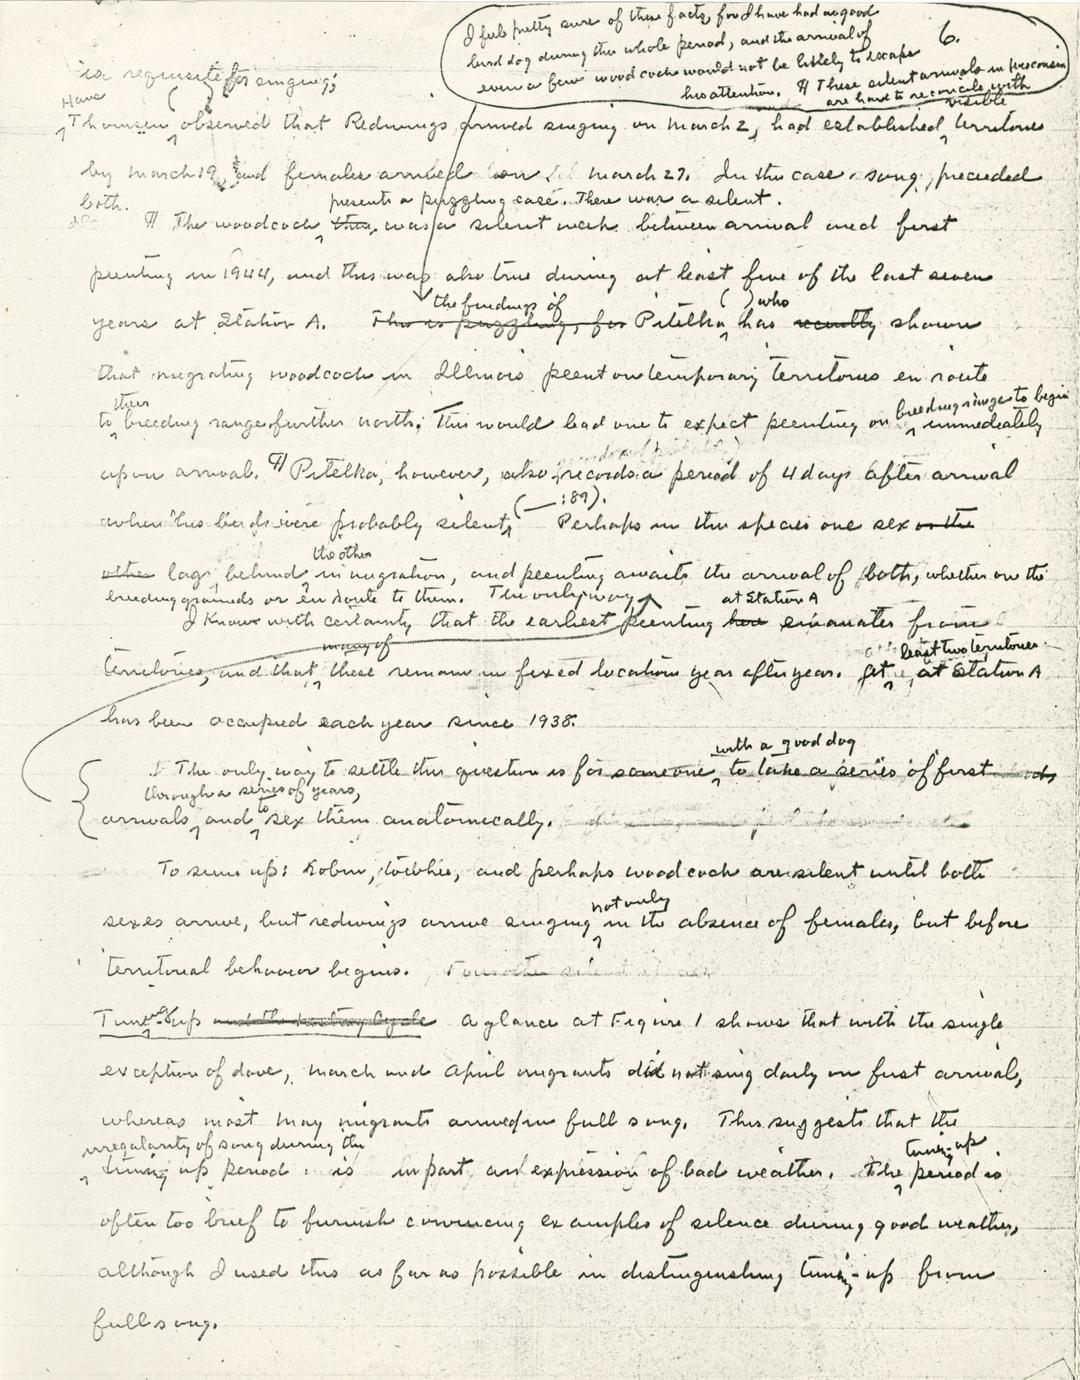 6.
I feel pretty sure of these facts, for I have had a good
bird dog during this whole period, and the arrival of
even a few woodcock would not be likely to escape
his attention. ¶ These silent arrivals in Wisconsin
are hard to reconcile with
is requisite for singing;
Have
visible
Thomsen ( observed that Redwings arrived singing on March 2, had established territories
by March 19, and females arrived on March 27. In this case song preceded
both.
presents a puzzling case. There was a silent
¶ The woodcock then was a silent week between arrival and first
peenting in 1944, and this was also true during at least five of the last seven
the findings of ( ) who
years at Station A. This is puzzling, for Pitelka has recently shown
that migrating woodcock in Illinois peent on temporary territories en route
their
breeding range to begin
to breeding range further north. This would lead one to expect peenting on immediately
upon arrival. ¶ Pitelka, however, also records a period of 4 days after arrival
( —:89).
when his birds were probably silent. Perhaps in this species one sex or the
the other
other lags behind in migration, and peenting awaits the arrival of both, whether on the
breeding grounds or en route to them. The only way
at Station A
I know with certainty that the earliest peenting here emanates from
many of
least two territories
territories, and that these remain in fixed location year after year. at Station A
has been occupied each year since 1938.
with a good dog
The only way to settle this question is for someone to take a series of first
through a series of years,
arrivals and to sex them anatomically.
To sum up: Robin, towhee, and perhaps woodcock are silent until both
not only
sexes arrive, but redwings arrive singing in the absence of females, but before
territorial behavior begins.
Tuning-up and the nesting cycle A glance at Figure 1 shows that with the single
exception of dove, March and April migrants did not sing daily on first arrival,
whereas most May migrants arrived in full song. This suggests that the
irregularity of song during the
tuning-up
tuning up period is in part an expression of bad weather. The period is
often too brief to furnish convincing examples of silence during good weather,
although I used this as far as possible in distinguishing tuning-up from
full song.